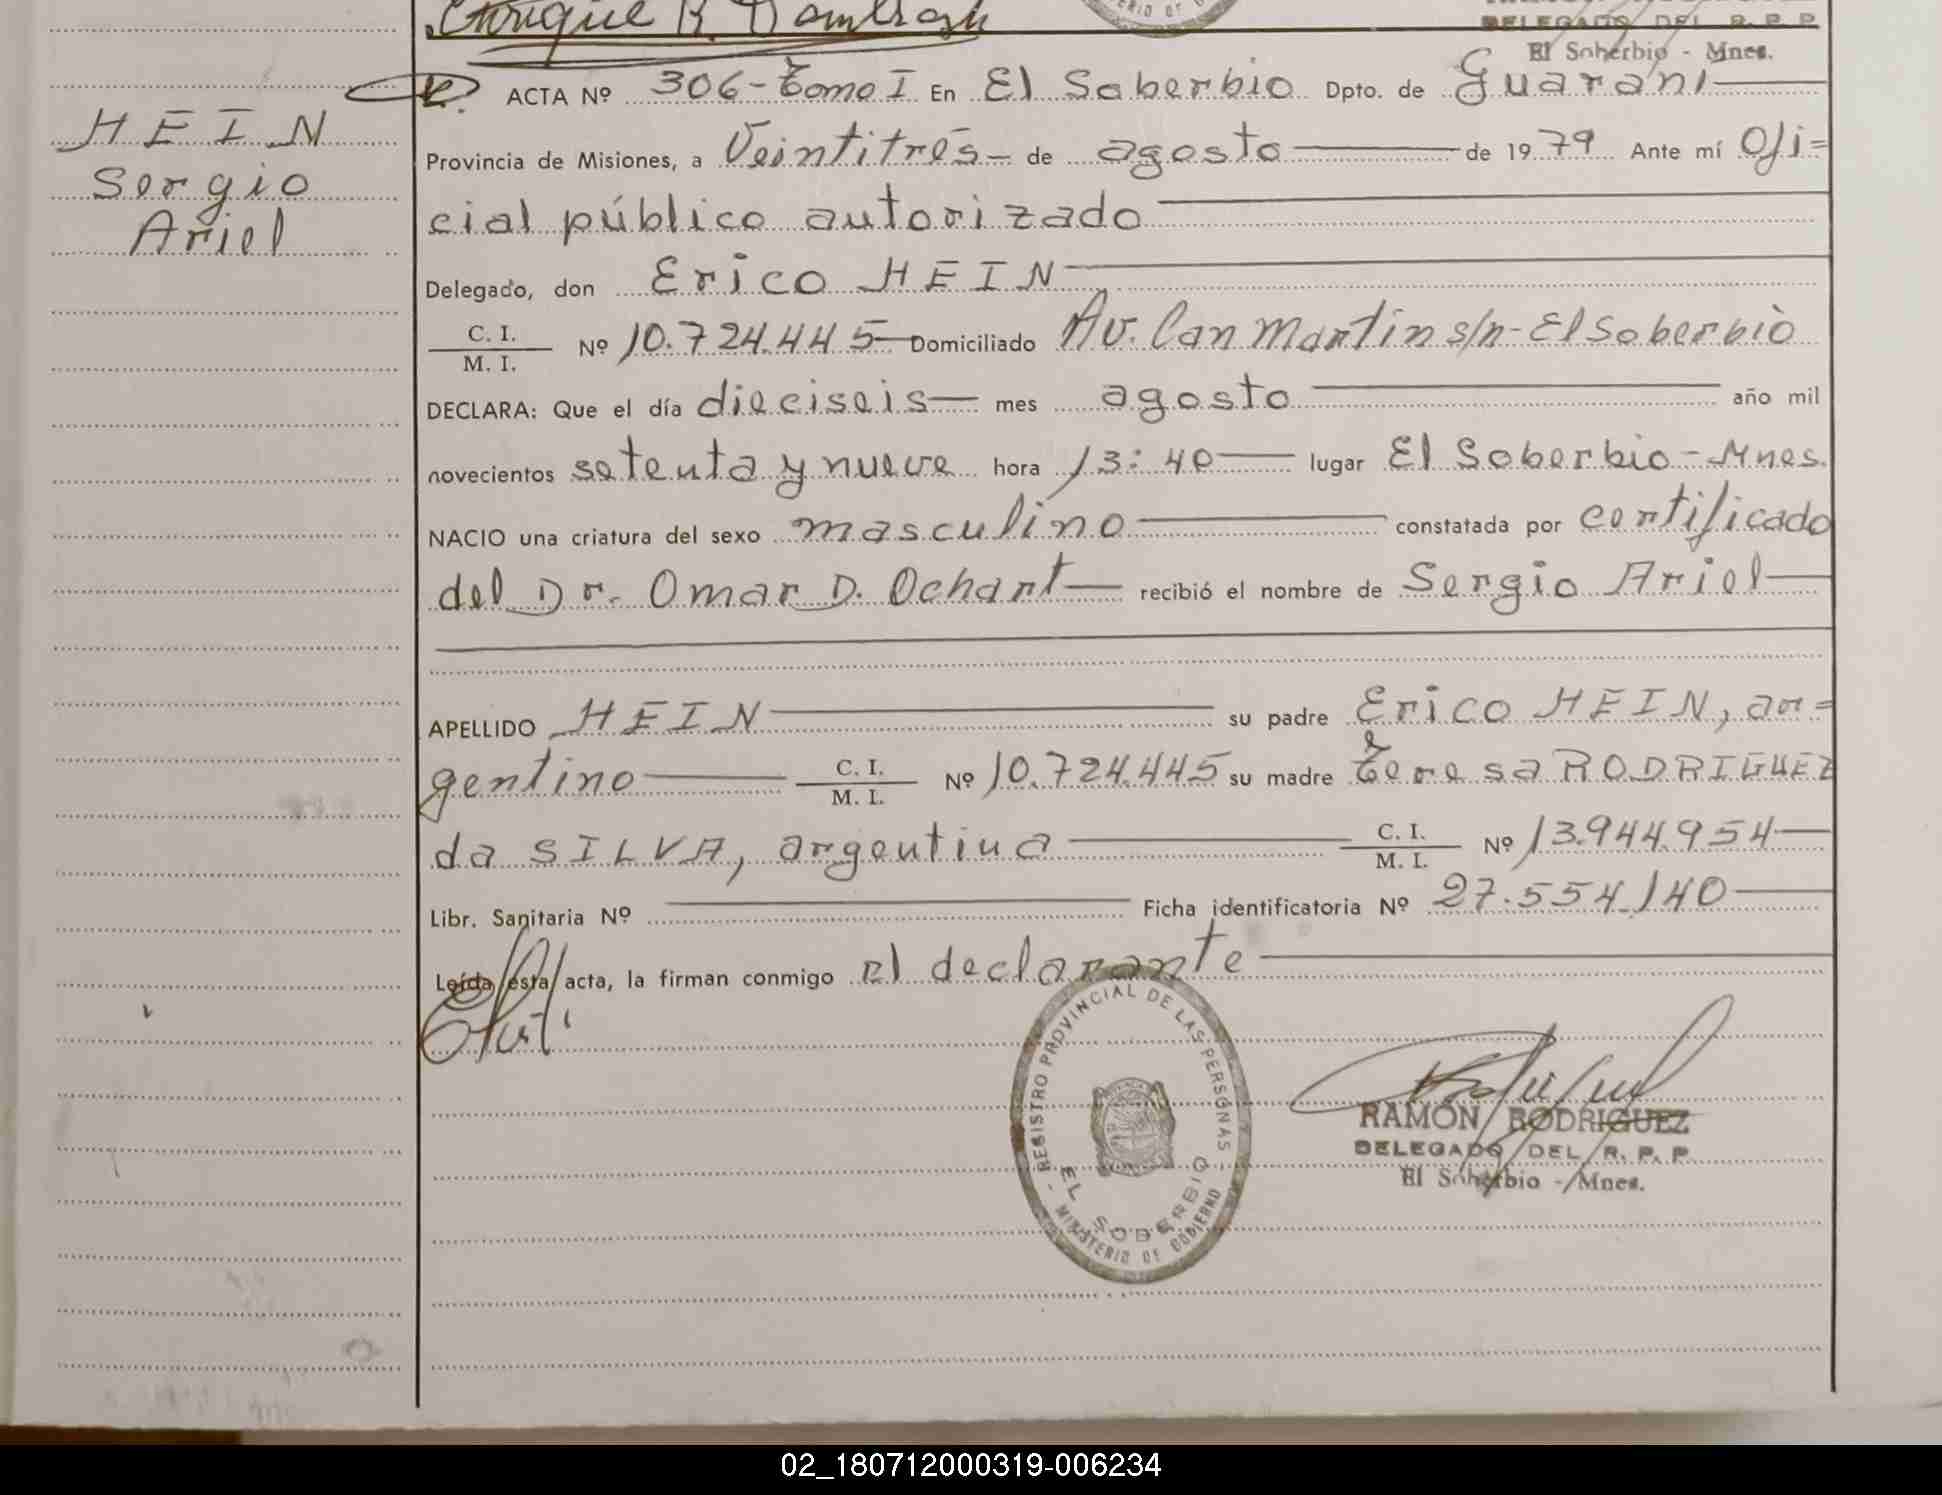 Enrique R.
DELEGADO DEL R. P. P.
El Soberbio - Mnes.
HEIN
Sergio
Ariel
ACTA Nº 306-Tomo I En El Soberbio Dpto. de Guaraní
Provincia de Misiones, a Veintitrés de agosto de 1979 Ante mí Ofi=
cial público autorizado
Delegado, don Erico HEIN
C. I.
M. I. Nº 10.724.445 Domiciliado Av. San Martin s/n - El Soberbio
DECLARA: Que el día dieciseis mes agosto año mil
novecientos setenta y nueve hora 13:40 lugar El Soberbio - Mnes.
NACIO una criatura del sexo masculino constatada por certificado
del Dr. Omar D. Ochart recibió el nombre de Sergio Ariel
APELLIDO HEIN su padre Erico HEIN, ar=
gentino C. I. M. I. Nº 10.724.445 su madre Teresa RODRIGUEZ
da SILVA, argentina C. I. M. I. Nº 13.944.954
Libr. Sanitaria Nº Ficha identificatoria Nº 27.554.140
Leída esta acta, la firman conmigo el declarante
REGISTRO PROVINCIAL DE LAS PERSONAS
EL SOBERBIO
MINISTERIO DE GOBIERNO
RAMON RODRIGUEZ
DELEGADO DEL R. P. P.
El Soberbio - Mnes.
02_180712000319-006234